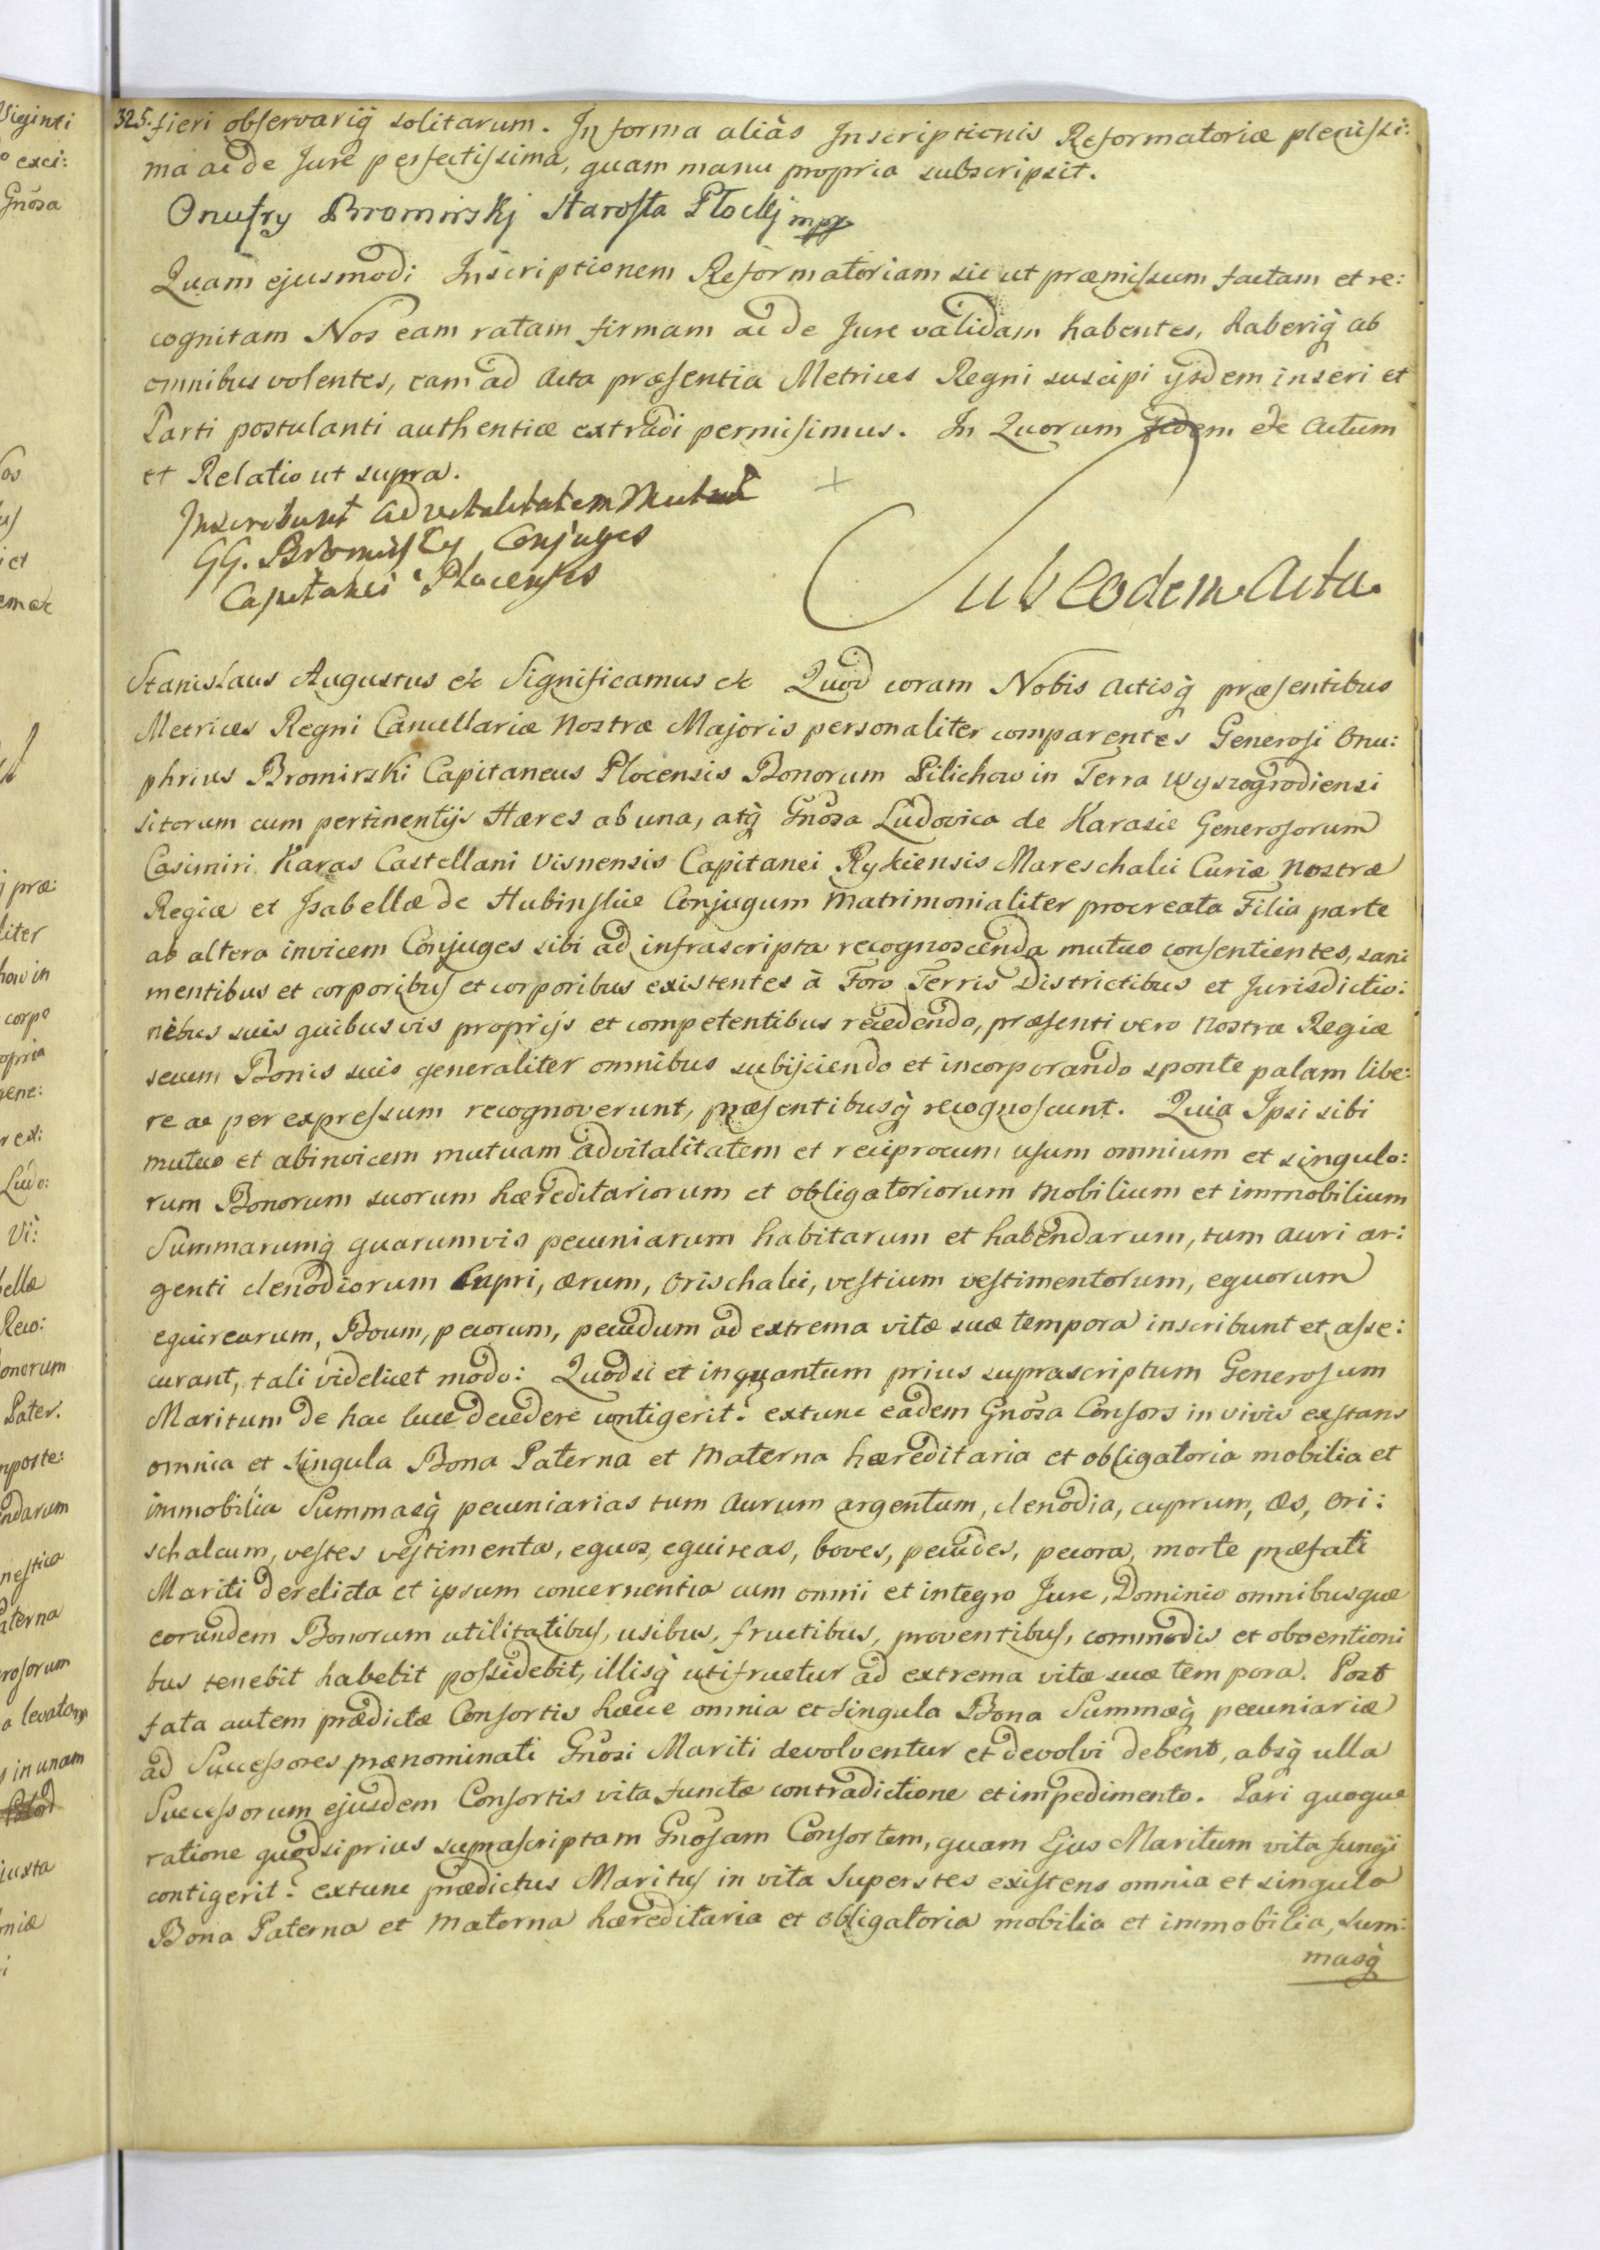 325. fieri observariq́ solitarum. In forma aliàs Inscriptionis Reformatoriæ plenissi:
ma ac de Jure perfectissima, quam manu propria subscripsit.
Onufry Bromirskj Starosta Płockj mpp
Quam ejusmodi Inscriptionem Reformatoriam sic ut præmissum factam et re:
cognitam Nos eam ratam firmam ac de Jure validam habentes, haberiq́ ab
omnibus volentes, eam ad Acta præsentia Metrices Regni suscipi ijsdem inseri et
Parti postulanti authenticæ extradi permisimus. In Quorum fidem etc Actum
et Relatio ut supra.
Inscribunt Advitalitatem Mutuā
GG. Bromirscy Conjuges
Capitanei Plocenses
Sub Eodem Actu.
Stanislaus Augustus etc Significamus etc Quod coram Nobis Actisq́ præsentibus
Metrices Regni Cancellariæ Nostræ Majoris personaliter comparentes Generosi Onu:
phrius Bromirski Capitaneus Plocensis Bonorum Pilichow in Terra Wyszogrodiensi
sitorum cum pertinentijs Hæres ab una, atq́ Gnosa Ludovica de Karasie Generosorum
Casimiri Karas Castellani Visnensis Capitanei Rykiensis Mareschalci Curiæ Nostræ
Regiæ et Isabellæ de Hubinskie Conjugum Matrimonialiter procreata Filia parte
ab altera invicem Conjuges sibi ad infrascripta recognoscenda mutuo consentientes, sani
mentibus et corporibus et corporibus existentes à Foro Terris Districtibus et Jurisdictio:
nibus suis quibusvis proprijs et competentibus recedendo, præsenti vero Nostræ Regiæ
secum Bonis suis generaliter omnibus subijciendo et incorporando sponte palam libe:
re ac per expressum recognoverunt, præsentibusq́ recognoscunt. Quia Ipsi sibi
mutuo et abinvicem mutuam advitalitatem et reciprocum usum omnium et singulo:
rum Bonorum suorum hæreditariorum et obligatoriorum Mobilium et immobilium
Summarumq́ quarumvis pecuniarum habitarum et habendarum, tum Auri ar:
genti clenodiorum Cupri, ærum, Orischalci, vestium vestimentorum, equorum
equirearum, Boum, pecorum, pecudum ad extrema vitæ suæ tempora inscribunt et asse:
curant, tali videlicet modo: Quodsi et inquantum prius suprascriptum Generosum
Maritum de hac luce decedere contigerit? extunc eadem Gnosa Consors in vivis exstans
omnia et singula Bona Paterna et Materna hæreditaria et obligatoria mobilia et
immobilia Summasq́ pecuniarias tum Aurum argentum, clenodia, cuprum, æs, Ori:
schalcum, vestes vestimenta, equos, equireas, boves, pecudes, pecora, morte præfati
Mariti derelicta et ipsum concernentia cum omni et integro Jure, Dominio omnibusque
eorundem Bonorum utilitatibus, usibus, fructibus, proventibus, commodis et obventioni
bus tenebit habebit possidebit, illisq́ utifruetur ad extrema vitæ suæ tempora. Post
fata autem prædictæ Consortis hæcce omnia et singula Bona Summæq́ pecuniariæ
ad Successores prænominati Gnosi Mariti devolventur et devolvi debent, absq́ ulla
Successorum ejusdem Consortis vita functæ contradictione et impedimento. Pari quoque
ratione quodsi prius suprascriptam Gnosam Consortem, quam Ejus Maritum vita fungi
contigerit? extunc prædictus Maritus in vita Superstes existens omnia et singula
Bona Paterna et Materna hæreditaria et obligatoria mobilia et immobilia, sum:
masq́